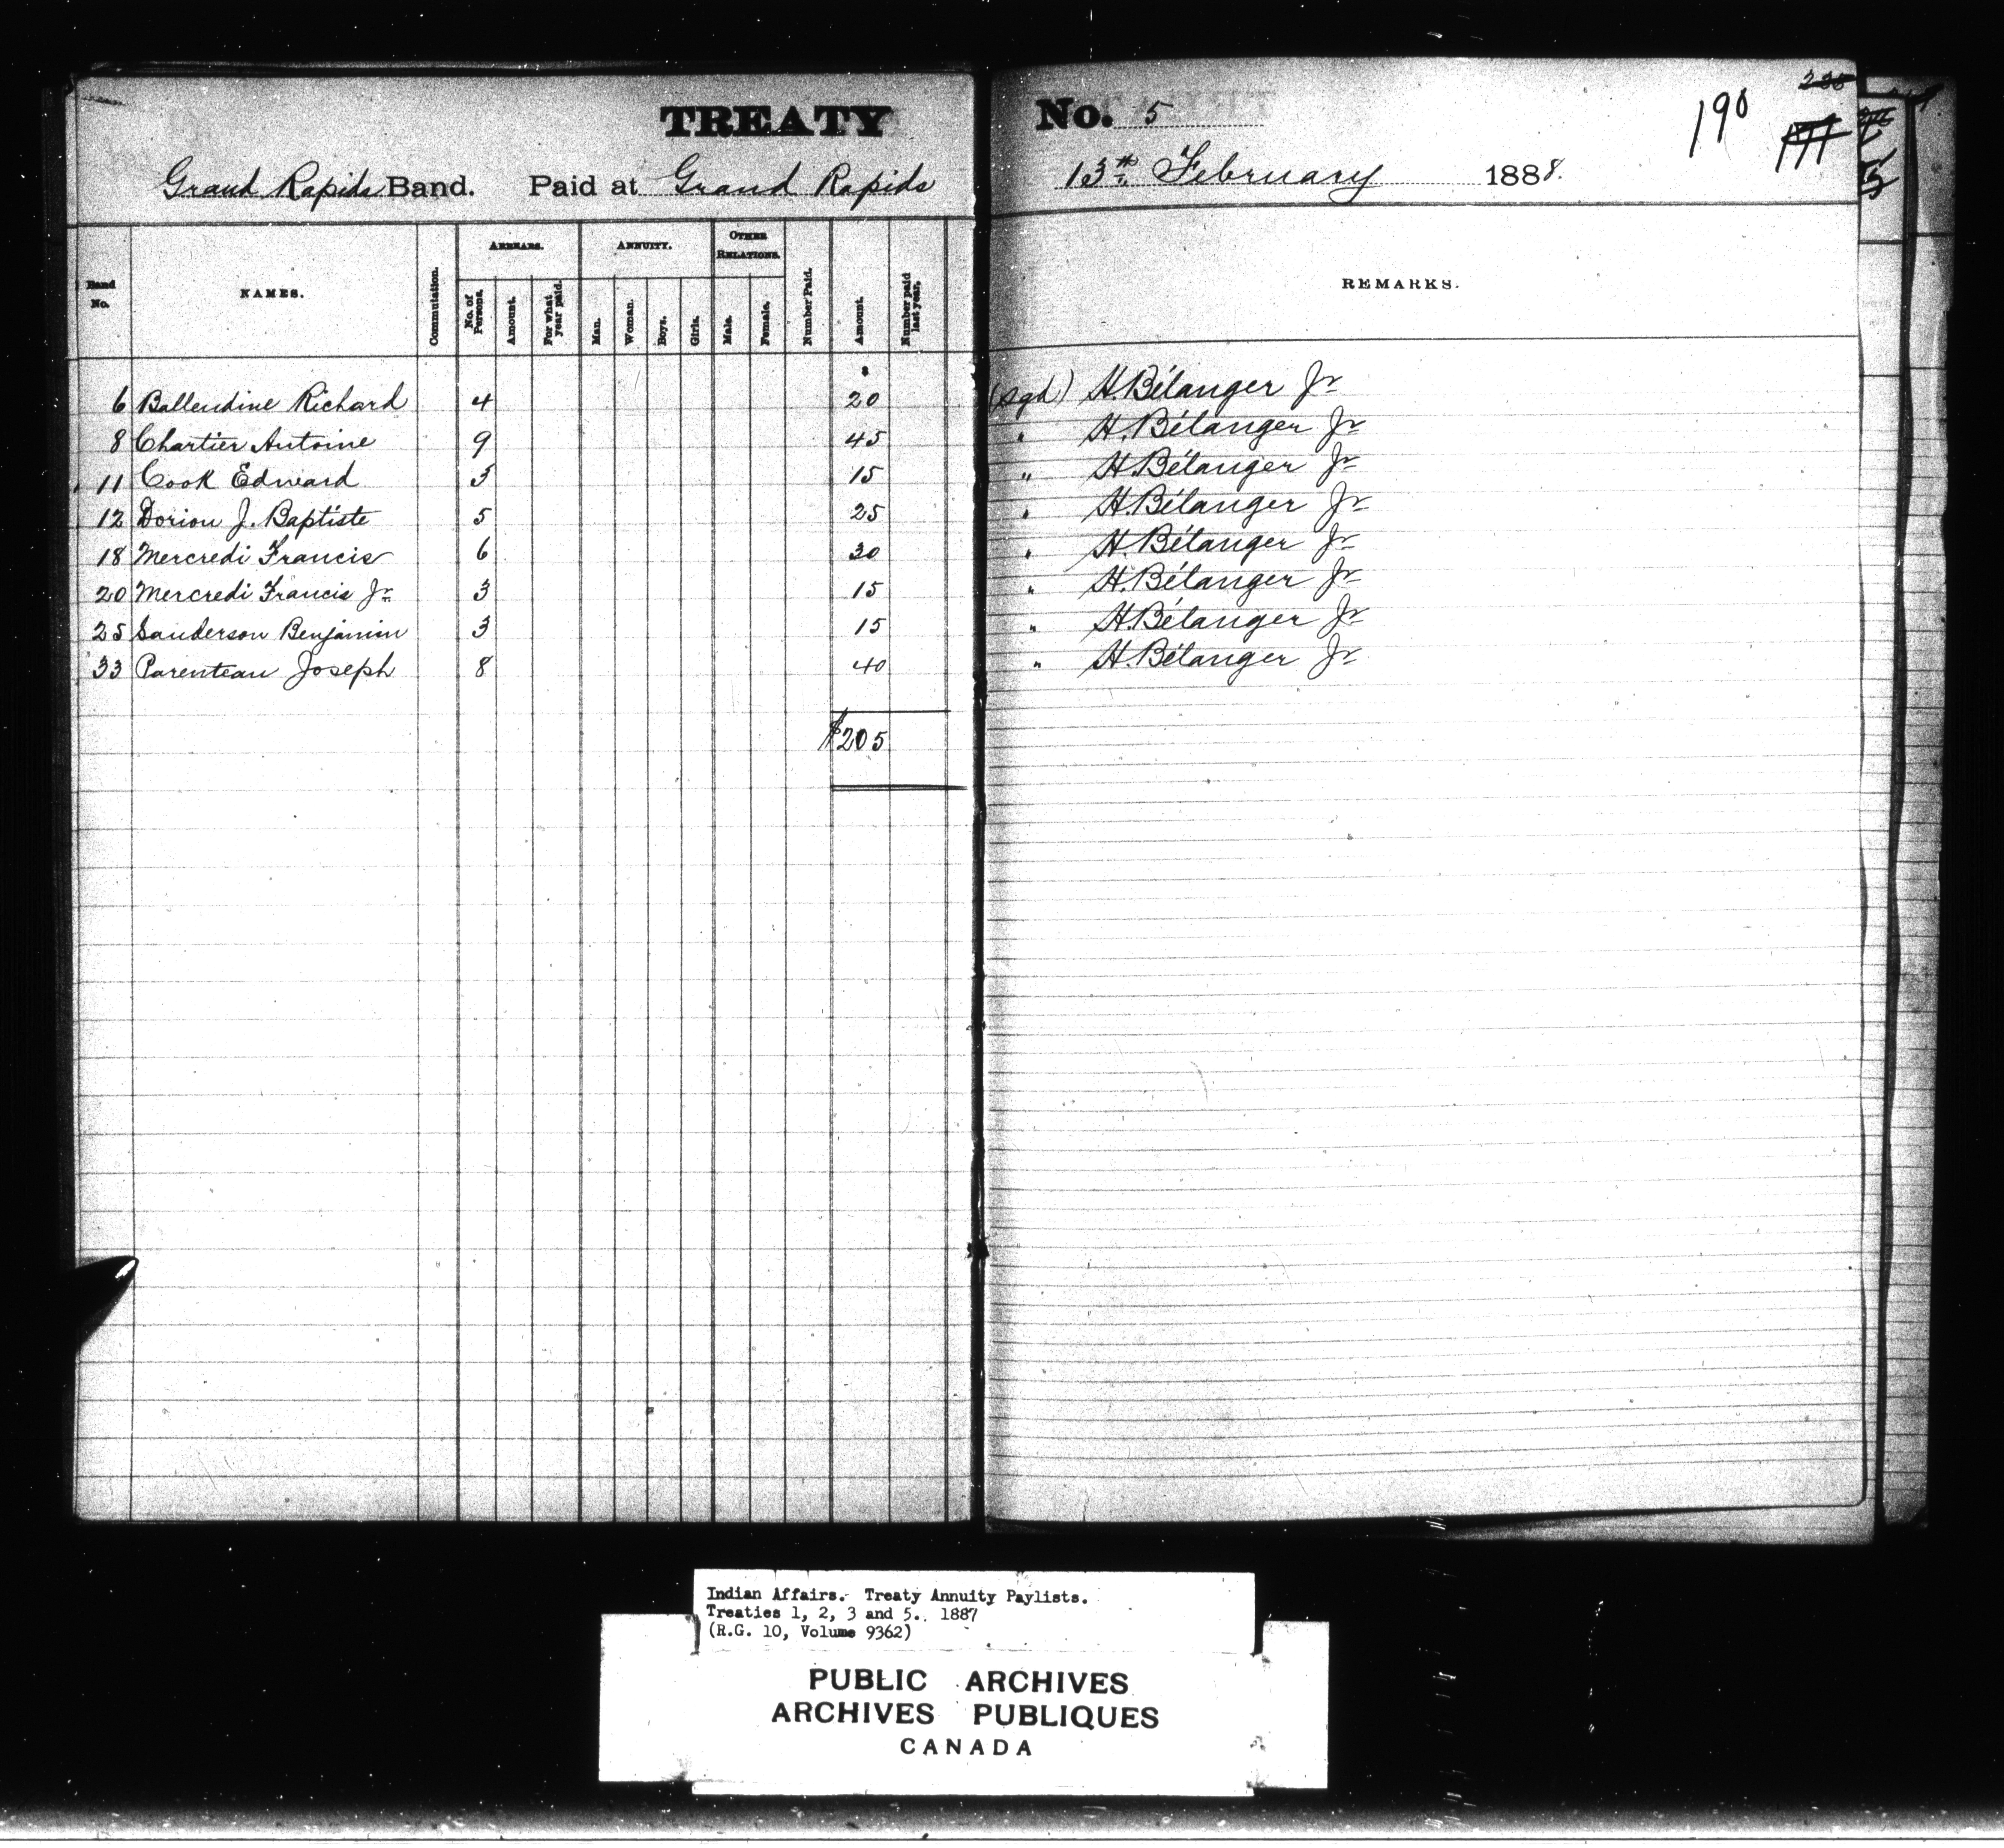 TREATY No. 5
190
Grand Rapids Band. Paid at Grand Rapids 13th February 1888.
Band No. NAMES. Commutation. ARREARS. No. of Persons. Amount. For what year paid. ANNUITY. Man. Woman. Boys. Girls. OTHER RELATIONS. Male. Female. Number Paid. Amount. Number paid last year. REMARKS.
6 Ballendine Richard 4 20 (sgd) H. Bélanger Jr
8 Chartier Antoine 9 45 " H. Bélanger Jr
11 Cook Edward 3 15 " H. Bélanger Jr
12 Dorion J. Baptiste 5 25 " H. Bélanger Jr
18 Mercredi Francis 6 30 " H. Bélanger Jr
20 Mercredi Francis Jr. 3 15 " H. Bélanger Jr
25 Sanderson Benjamin 3 15 " H. Bélanger Jr
33 Parenteau Joseph 8 40 " H. Bélanger Jr
$205
Indian Affairs. Treaty Annuity Paylists.
Treaties 1, 2, 3 and 5. 1887
(R.G. 10, Volume 9362)
PUBLIC ARCHIVES
ARCHIVES PUBLIQUES
CANADA